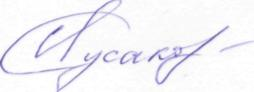 Гусаков